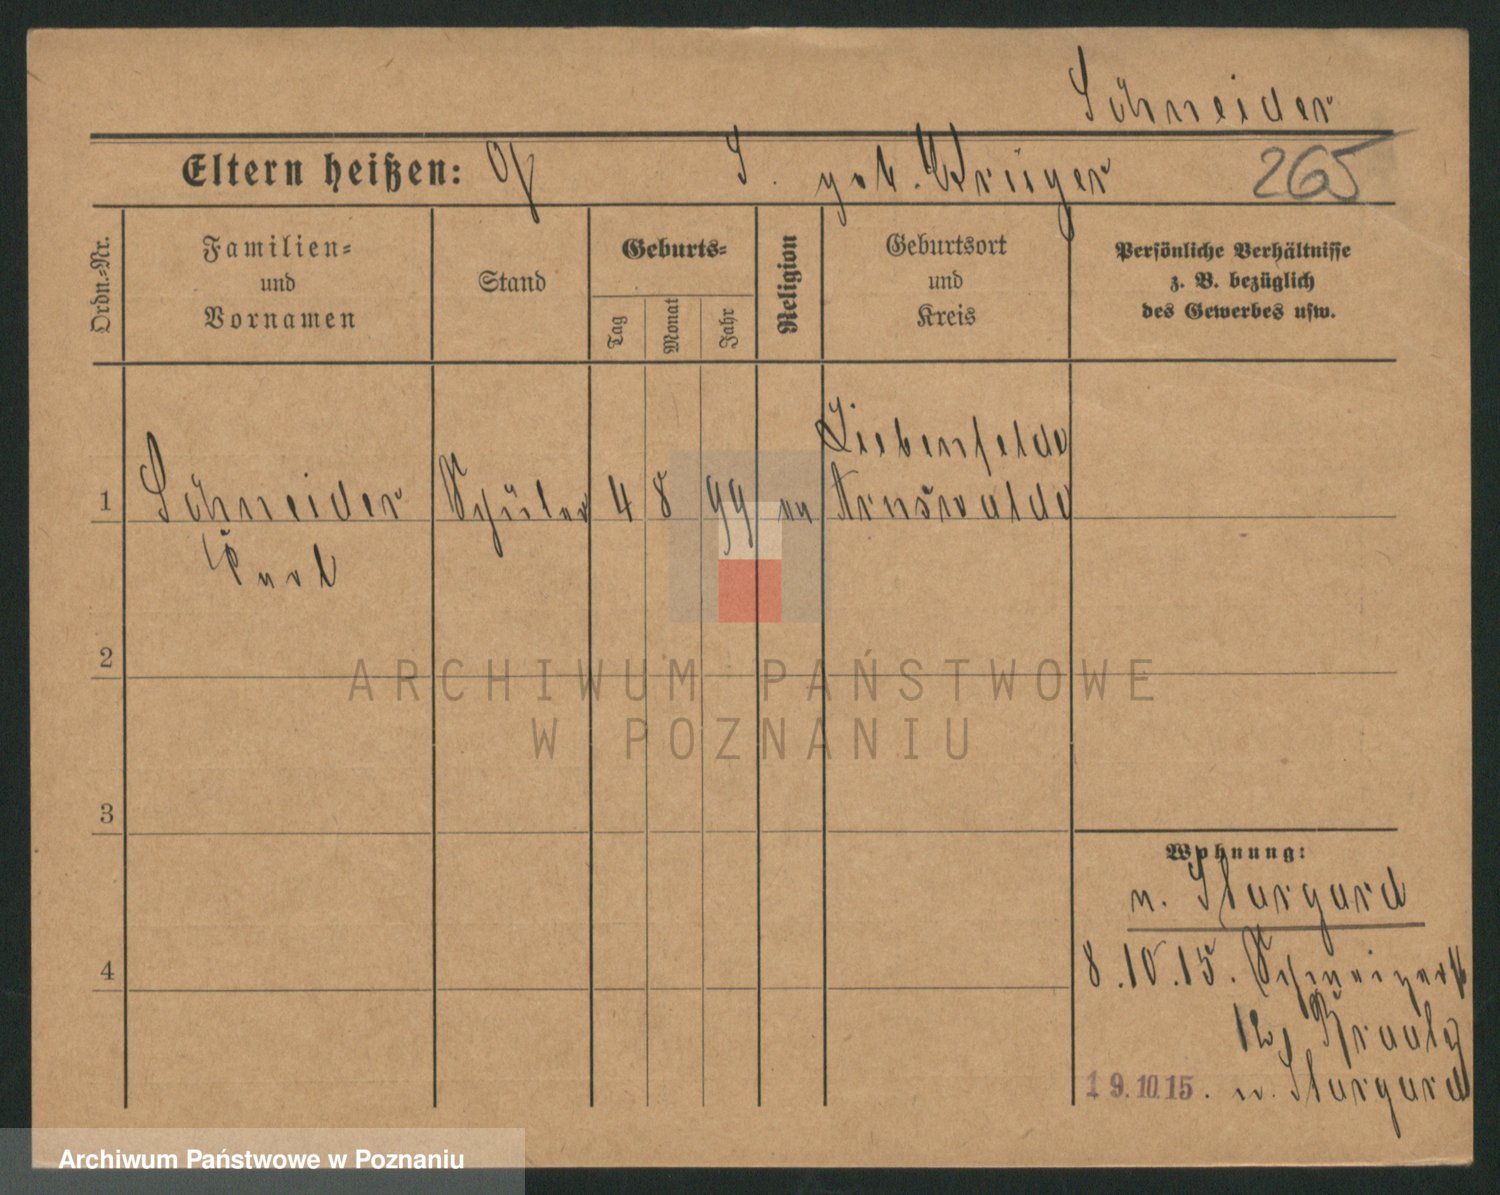 Schneider
Eltern heißen: S. geb. Krüger 265
Ordn.-Nr.
Familien-
und
Vornamen
Stand
Geburts-
Tag
Monat
Jahr
Religion
Geburtsort
und
Kreis
Persönliche Verhältnisse
z. B. bezüglich
des Gewerbes usw.
Liebenfelde
1 Schneider Schüler 4 8 99 ev Arnswalde
2
ARCHIWUM PAŃSTWOWE
W POZNANIU
3
Wohnung:
n. Stargard
4
8.10.15.
19.10.15. n. Stargard
Archiwum Państwowe w Poznaniu